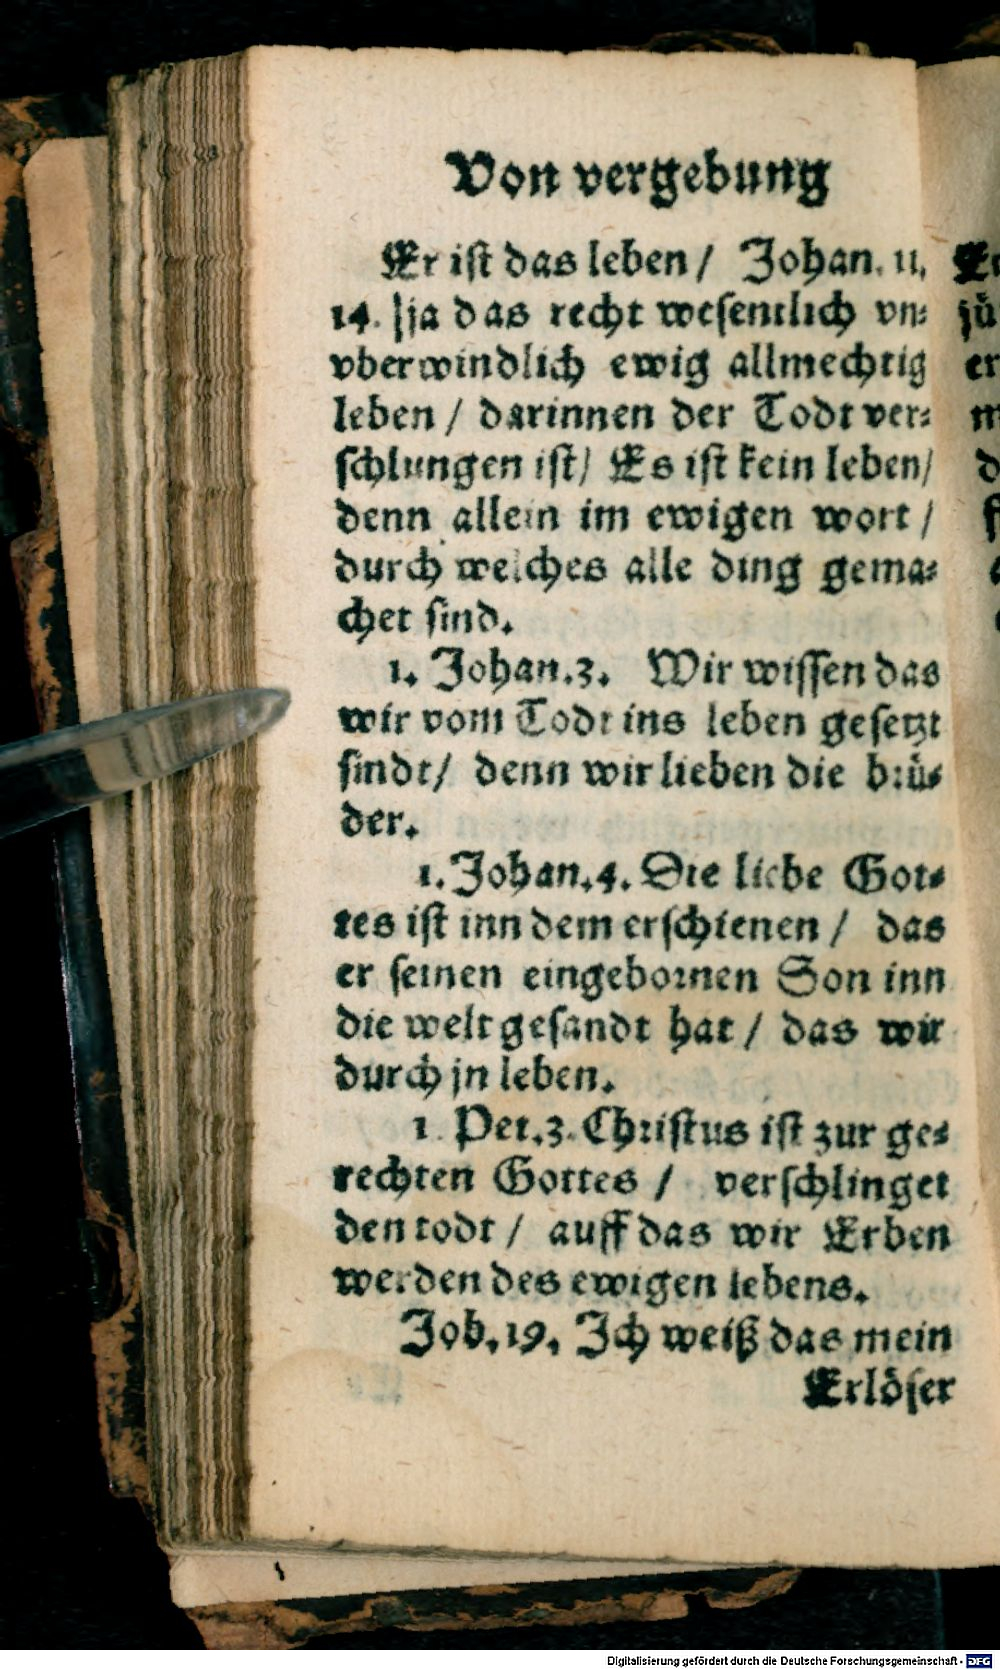 Von vergebung
Er ist das leben / Johan. 11.
14. ja das recht wesentlich vn⸗
vberwindlich ewig allmechtig
leben / darinnen der Todt ver⸗
schlungen ist / Es ist kein leben /
denn allein im ewigen wort /
durch welches alle ding gema⸗
chet sind.
1. Johan. 3. Wir wissen das
wir vom Todt ins leben gesetzt
sindt / denn wir lieben die brü⸗
der.
1. Johan. 4. Die liebe Got⸗
tes ist inn dem erschienen / das
er seinen eingebornen Son inn
die welt gesandt hat / das wir
durch jn leben.
1. Pet. 3. Christus ist zur ge⸗
rechten Gottes / verschlinget
den todt / auff das wir Erben
werden des ewigen lebens.
Job. 19. Ich weiß das mein
Erlöser
Digitalisierung gefördert durch die Deutsche Forschungsgemeinschaft - DFG